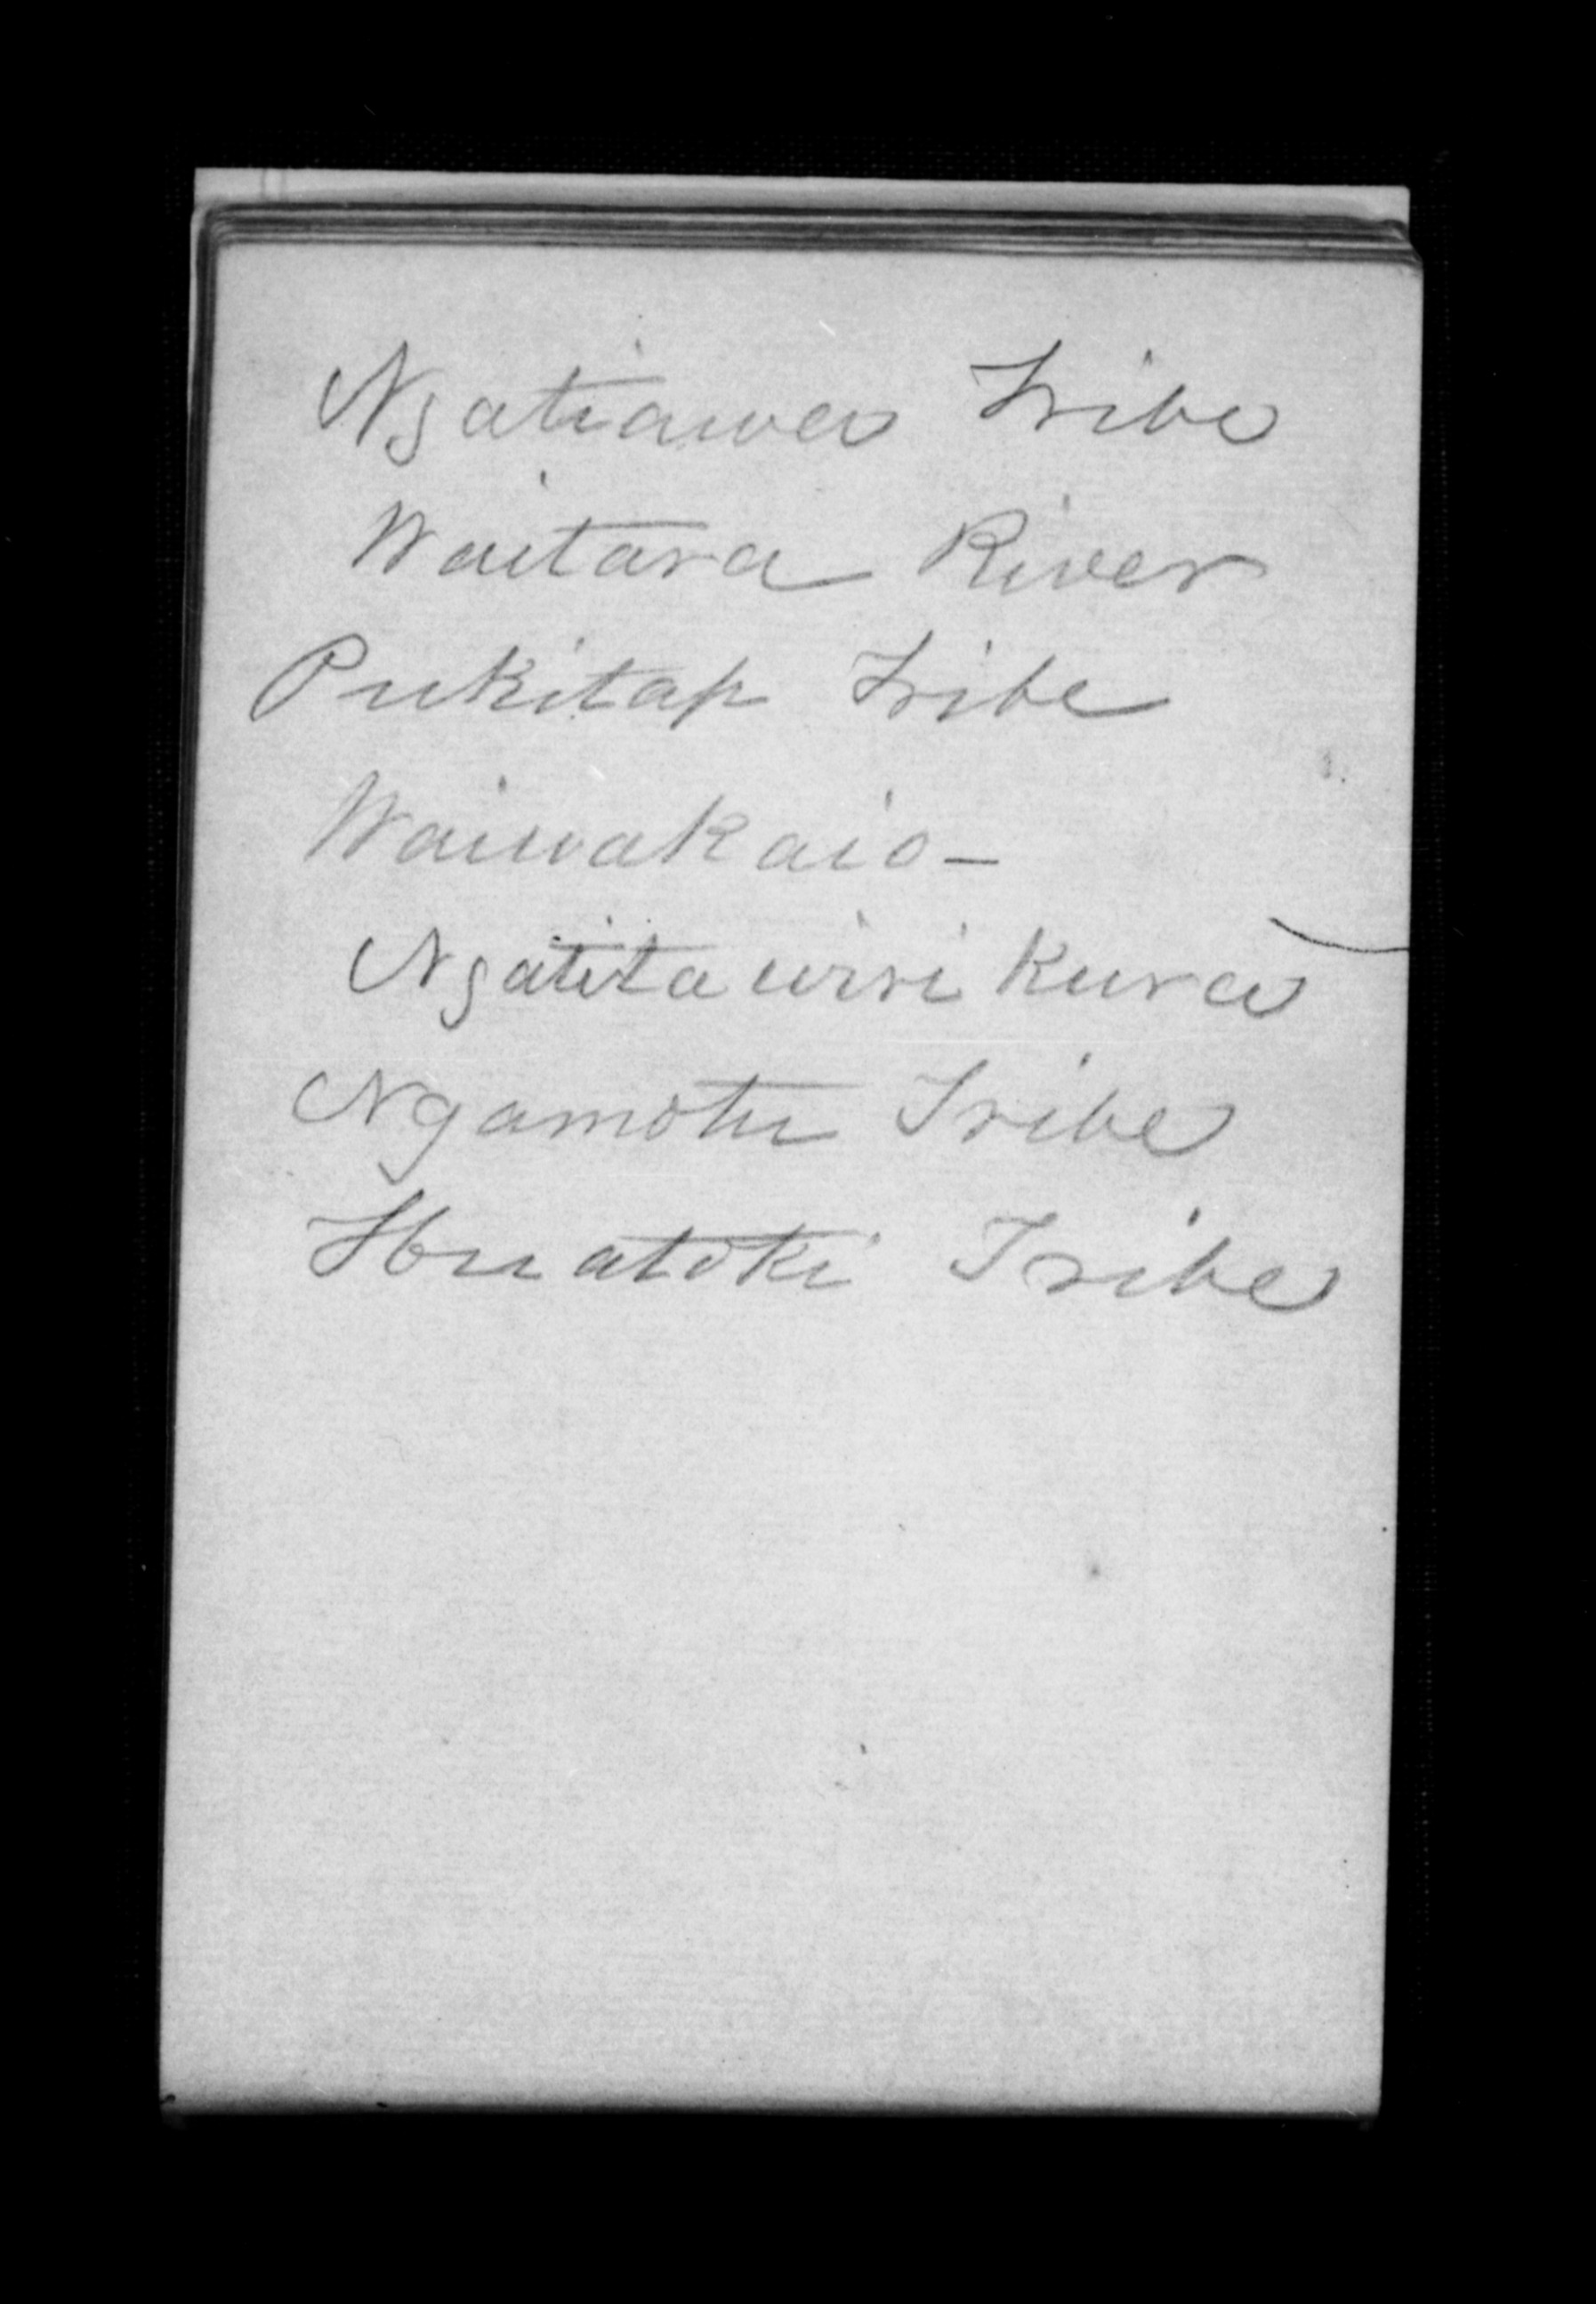 Ngatiawa Tribe
Waitara River
Pukitap Tribe
Waiwakaio-
Ngatitawirikura
Ngamotu Tribe
Huatoki Tribe